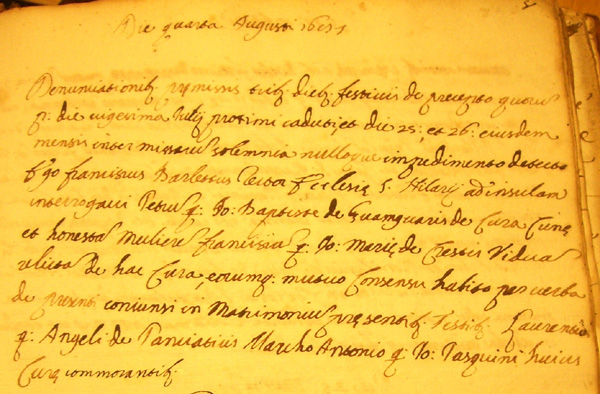 Die quarta Augusti 1651
Denunciationib; premissis trib; dieb; festiuis de precepto quoru
p: die uigesima Iulij proximi caduti, et die 25: et 26: eiusdem
mensis inter missaru solemnia nulloque impedimento detecto
Ego franciscus Barlettus Rector Ecclesię S. Hilarij ad insulam
interrogaui Petru q: Io: Baptiste de Guamguaris de Cura Cunę
et honesta muliere francisca q: Io: Marię de Crestis Vidua
relicta de hac Cura, eorumq; mutuo Consensu habito per uerba
de presenti coniunsi in Matrimoniu pręsentib; Testib; Laurentio
q: Angeli de Panciatius Marcho Antonio q: Io: Pasquini huius
Curę commorantib;